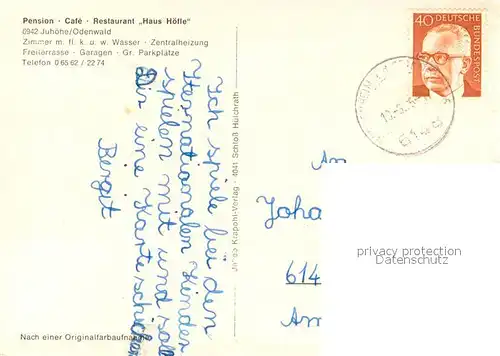 Pension · Café · Restaurant „Haus Höfle"
6942 Juhöhe/Odenwald
Zimmer m. fl. k. u. w. Wasser · Zentralheizung
Freiterrasse · Garagen · Gr. Parkplätze
Telefon 0 65 62 / 22 74
40 DEUTSCHE BUNDESPOST
Ich spiele bei den
Iternationalen Kinder
spielen mit und soll
Dir eine Karte schicken
Bergit
James Krapohl-Verlag · 4041 Schloß Hülchrath
An
Joha
614
Am
privacy protection
Datenschutz
Nach einer Originalfarbaufnahme